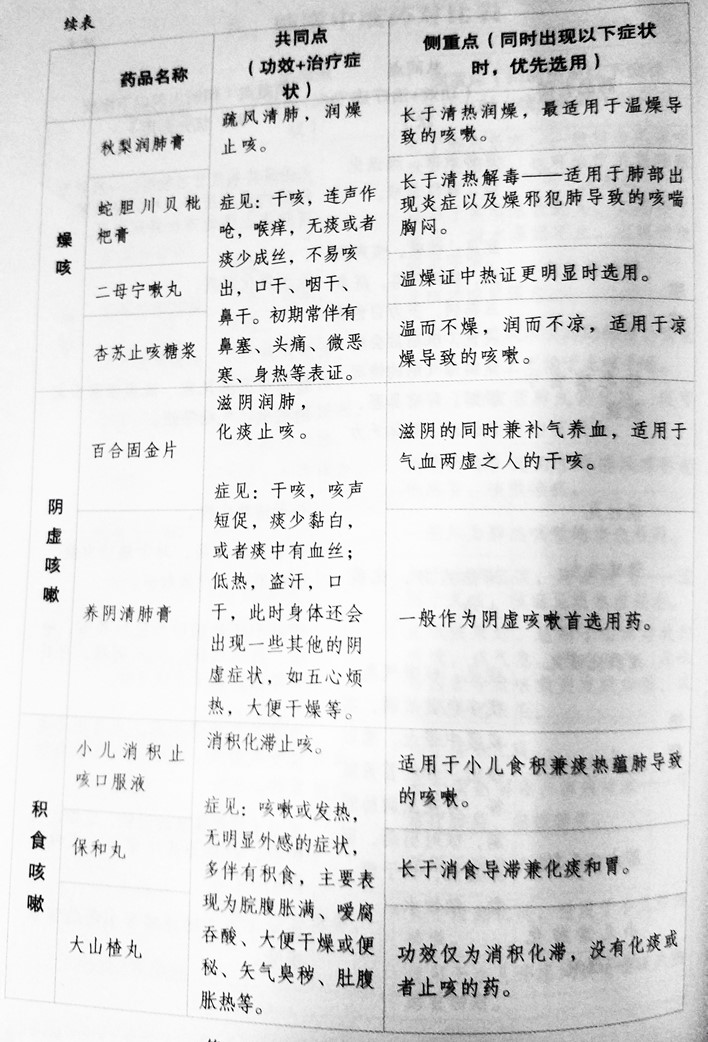 续表
药品名称
共同点
（功效+治疗症
状）
侧重点（同时出现以下症状
时，优先选用）
燥咳
秋梨润肺膏
蛇胆川贝枇
杷膏
二母宁嗽丸
杏苏止咳糖浆
疏风清肺，润燥
止咳。
症见：干咳，连声作
呛，喉痒，无痰或者
痰少成丝，不易咳
出，口干、咽干、
鼻干。初期常伴有
鼻塞、头痛、微恶
寒、身热等表证。
长于清热润燥，最适用于温燥导
致的咳嗽。
长于清热解毒——适用于肺部出
现炎症以及燥邪犯肺导致的咳喘
胸闷。
温燥证中热证更明显时选用。
温而不燥，润而不凉，适用于凉
燥导致的咳嗽。
阴虚咳嗽
百合固金片
养阴清肺膏
滋阴润肺，
化痰止咳。
症见：干咳，咳声
短促，痰少黏白，
或者痰中有血丝；
低热，盗汗，口
干，此时身体还会
出现一些其他的阴
虚症状，如五心烦
热，大便干燥等。
滋阴的同时兼补气养血，适用于
气血两虚之人的干咳。
一般作为阴虚咳嗽首选用药。
积食咳嗽
小儿消积止
咳口服液
保和丸
大山楂丸
消积化滞止咳。
症见：咳嗽或发热，
无明显外感的症状，
多伴有积食，主要表
现为脘腹胀满、嗳腐
吞酸、大便干燥或便
秘、矢气臭秽、肚腹
胀热等。
适用于小儿食积兼痰热蕴肺导致
的咳嗽。
长于消食导滞兼化痰和胃。
功效仅为消积化滞，没有化痰或
者止咳的药。